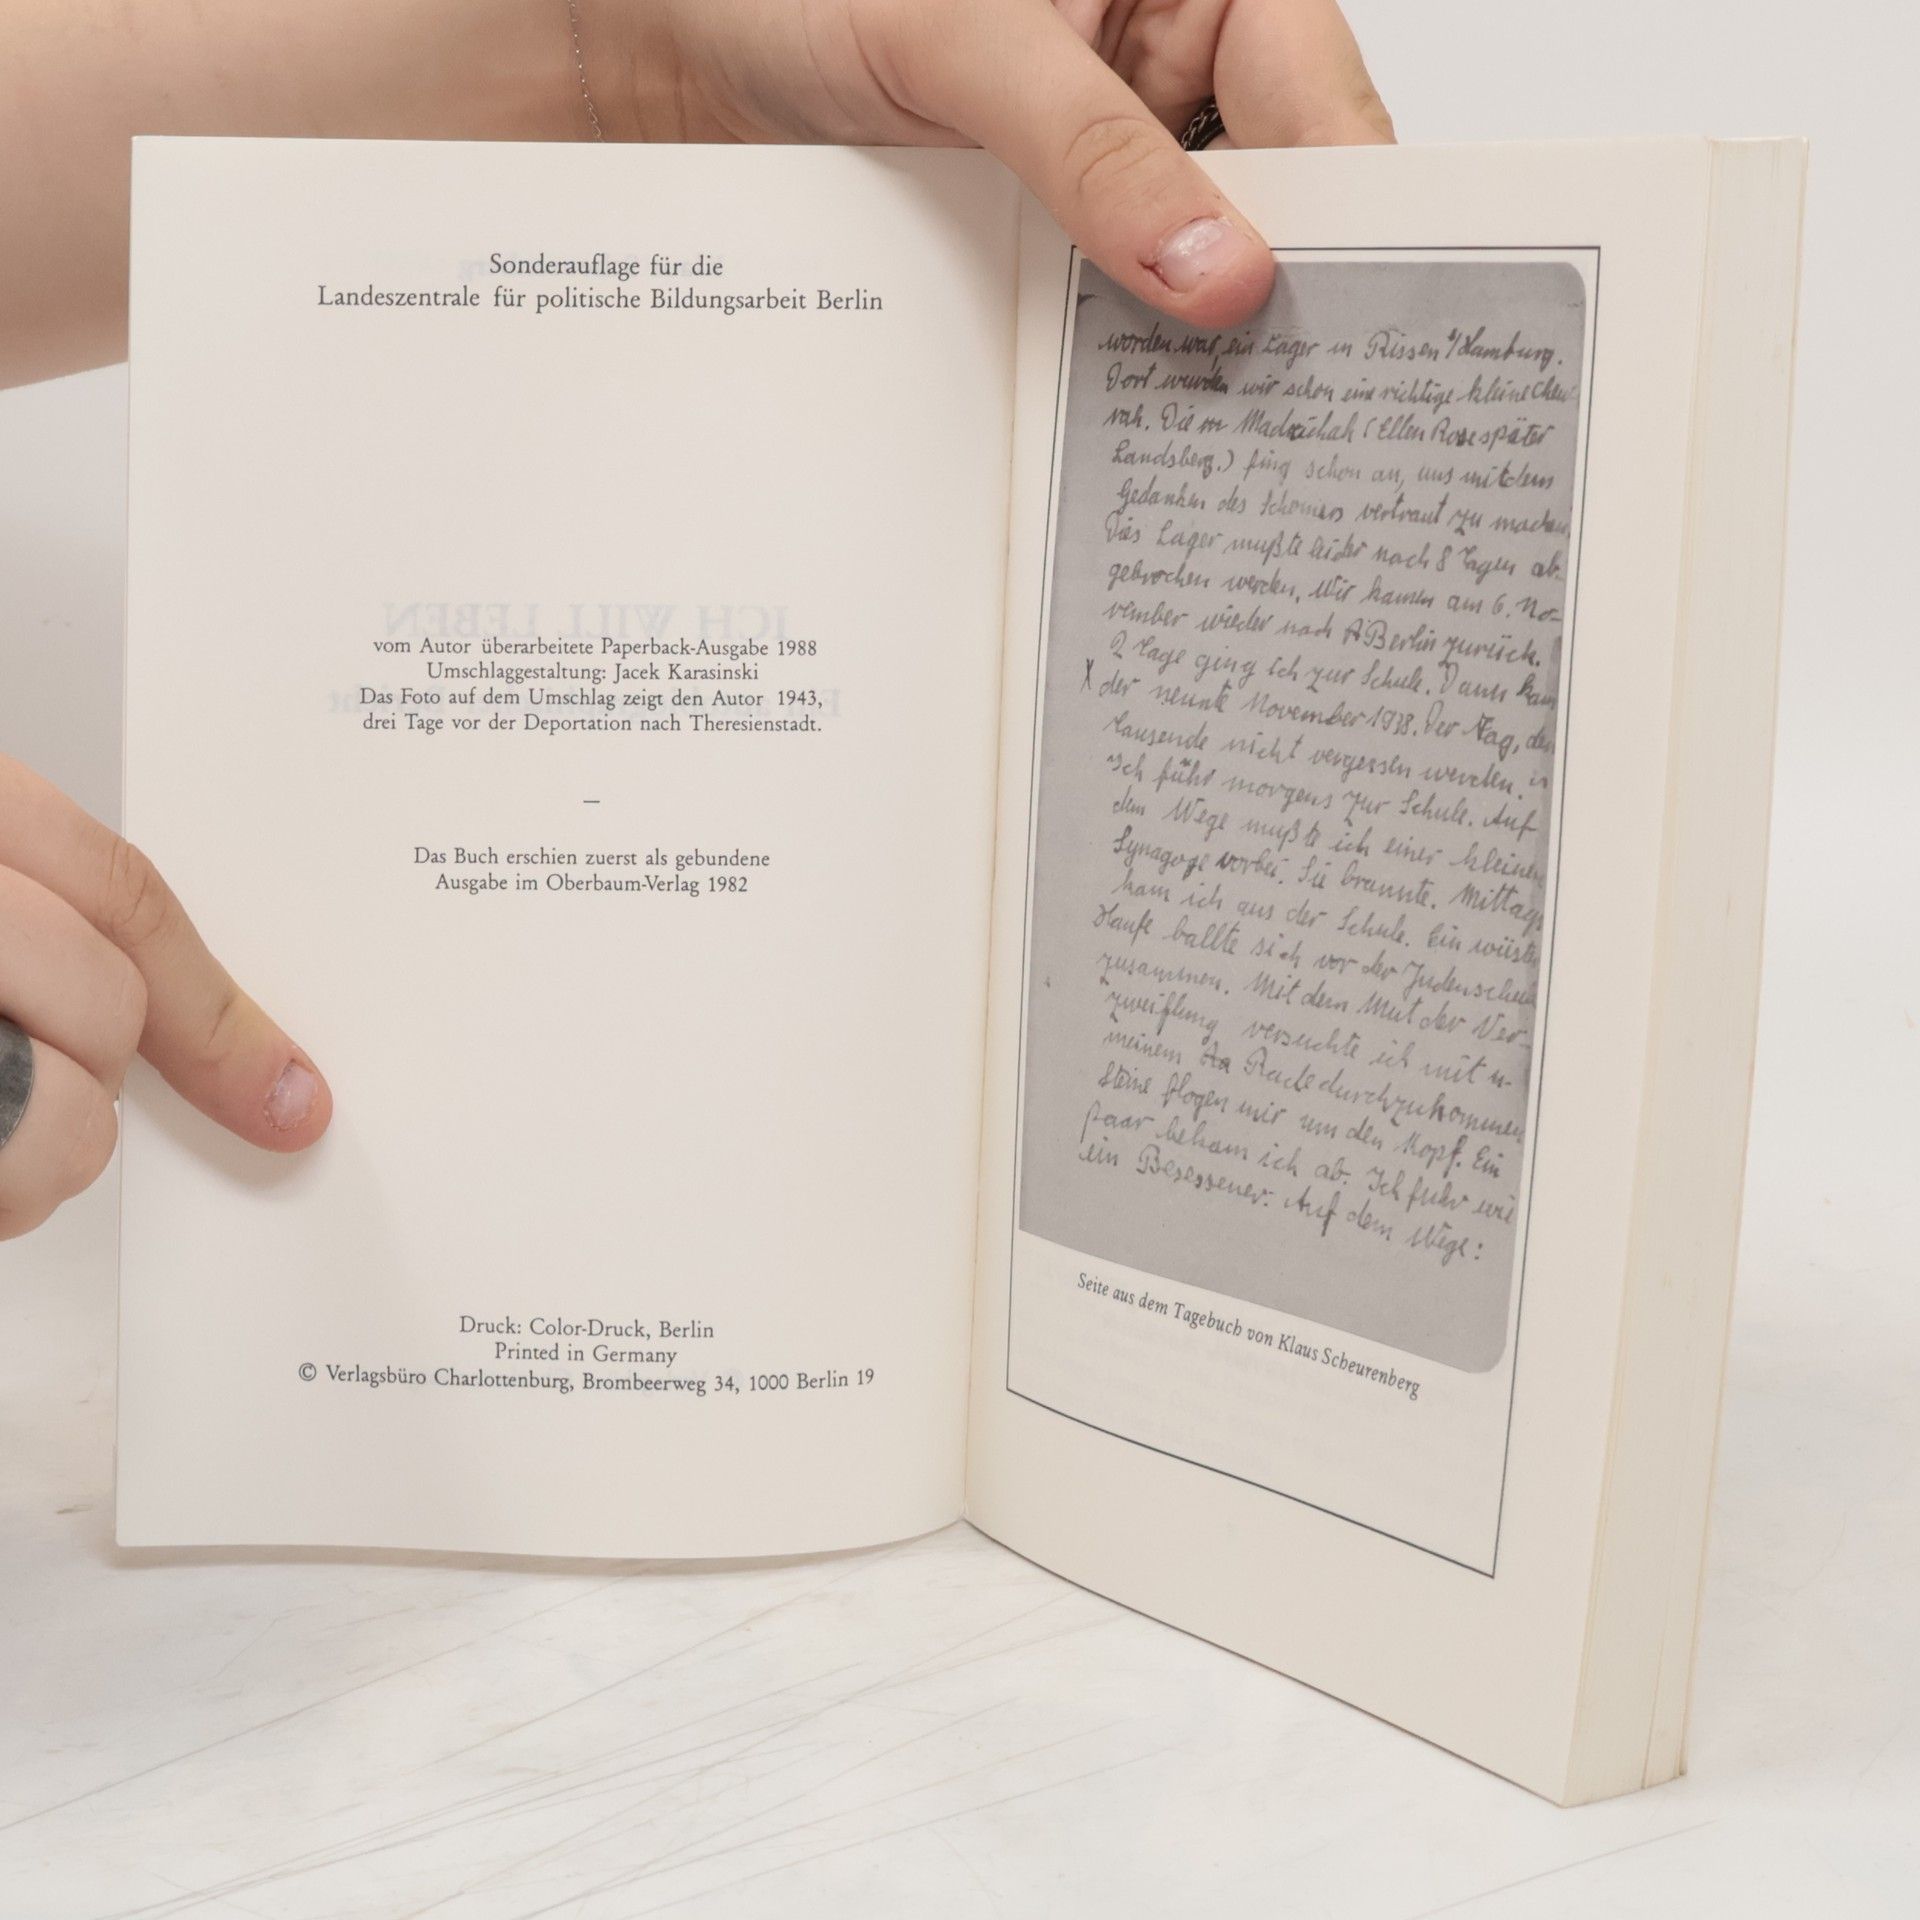 Sonderauflage für die
Landeszentrale für politische Bildungsarbeit Berlin
ICH WILL LEBEN
vom Autor überarbeitete Paperback-Ausgabe 1988
Umschlaggestaltung: Jacek Karasinski
Das Foto auf dem Umschlag zeigt den Autor 1943,
drei Tage vor der Deportation nach Theresienstadt.
—
Das Buch erschien zuerst als gebundene
Ausgabe im Oberbaum-Verlag 1982
Druck: Color-Druck, Berlin
Printed in Germany
© Verlagsbüro Charlottenburg, Brombeerweg 34, 1000 Berlin 19
worden war, ein Lager in Rissen b/Hamburg.
Dort wurden wir schon eine richtige kleine Chew
rah. Die Madrichah (Ellen Rose später
Landsberg.) fing schon an, uns mit dem
Gedanken des Schomers vertraut zu machen.
Dies Lager mußte leider nach 8 Tagen ab-
gebrochen werden. Wir kamen am 6. No-
vember wieder nach Berlin zurück.
2 Tage ging ich zur Schule. Dann kam
X der neunte November 1938. Der Tag, den
tausende nicht vergessen werden.
Ich fuhr morgens zur Schule. Auf
dem Wege mußte ich einer kleinen
Synagoge vorbei. Sie brannte. Mittags
kam ich aus der Schule. Ein wüster
Haufe ballte sich vor der Judenschule
zusammen. Mit dem Mut der Ver-
zweiflung versuchte ich mit
meinem Rade durchzukommen
Steine flogen mir um den Kopf. Ein
paar bekam ich ab. Ich fuhr wie
ein Besessener. Auf dem Wege:
Seite aus dem Tagebuch von Klaus Scheurenberg